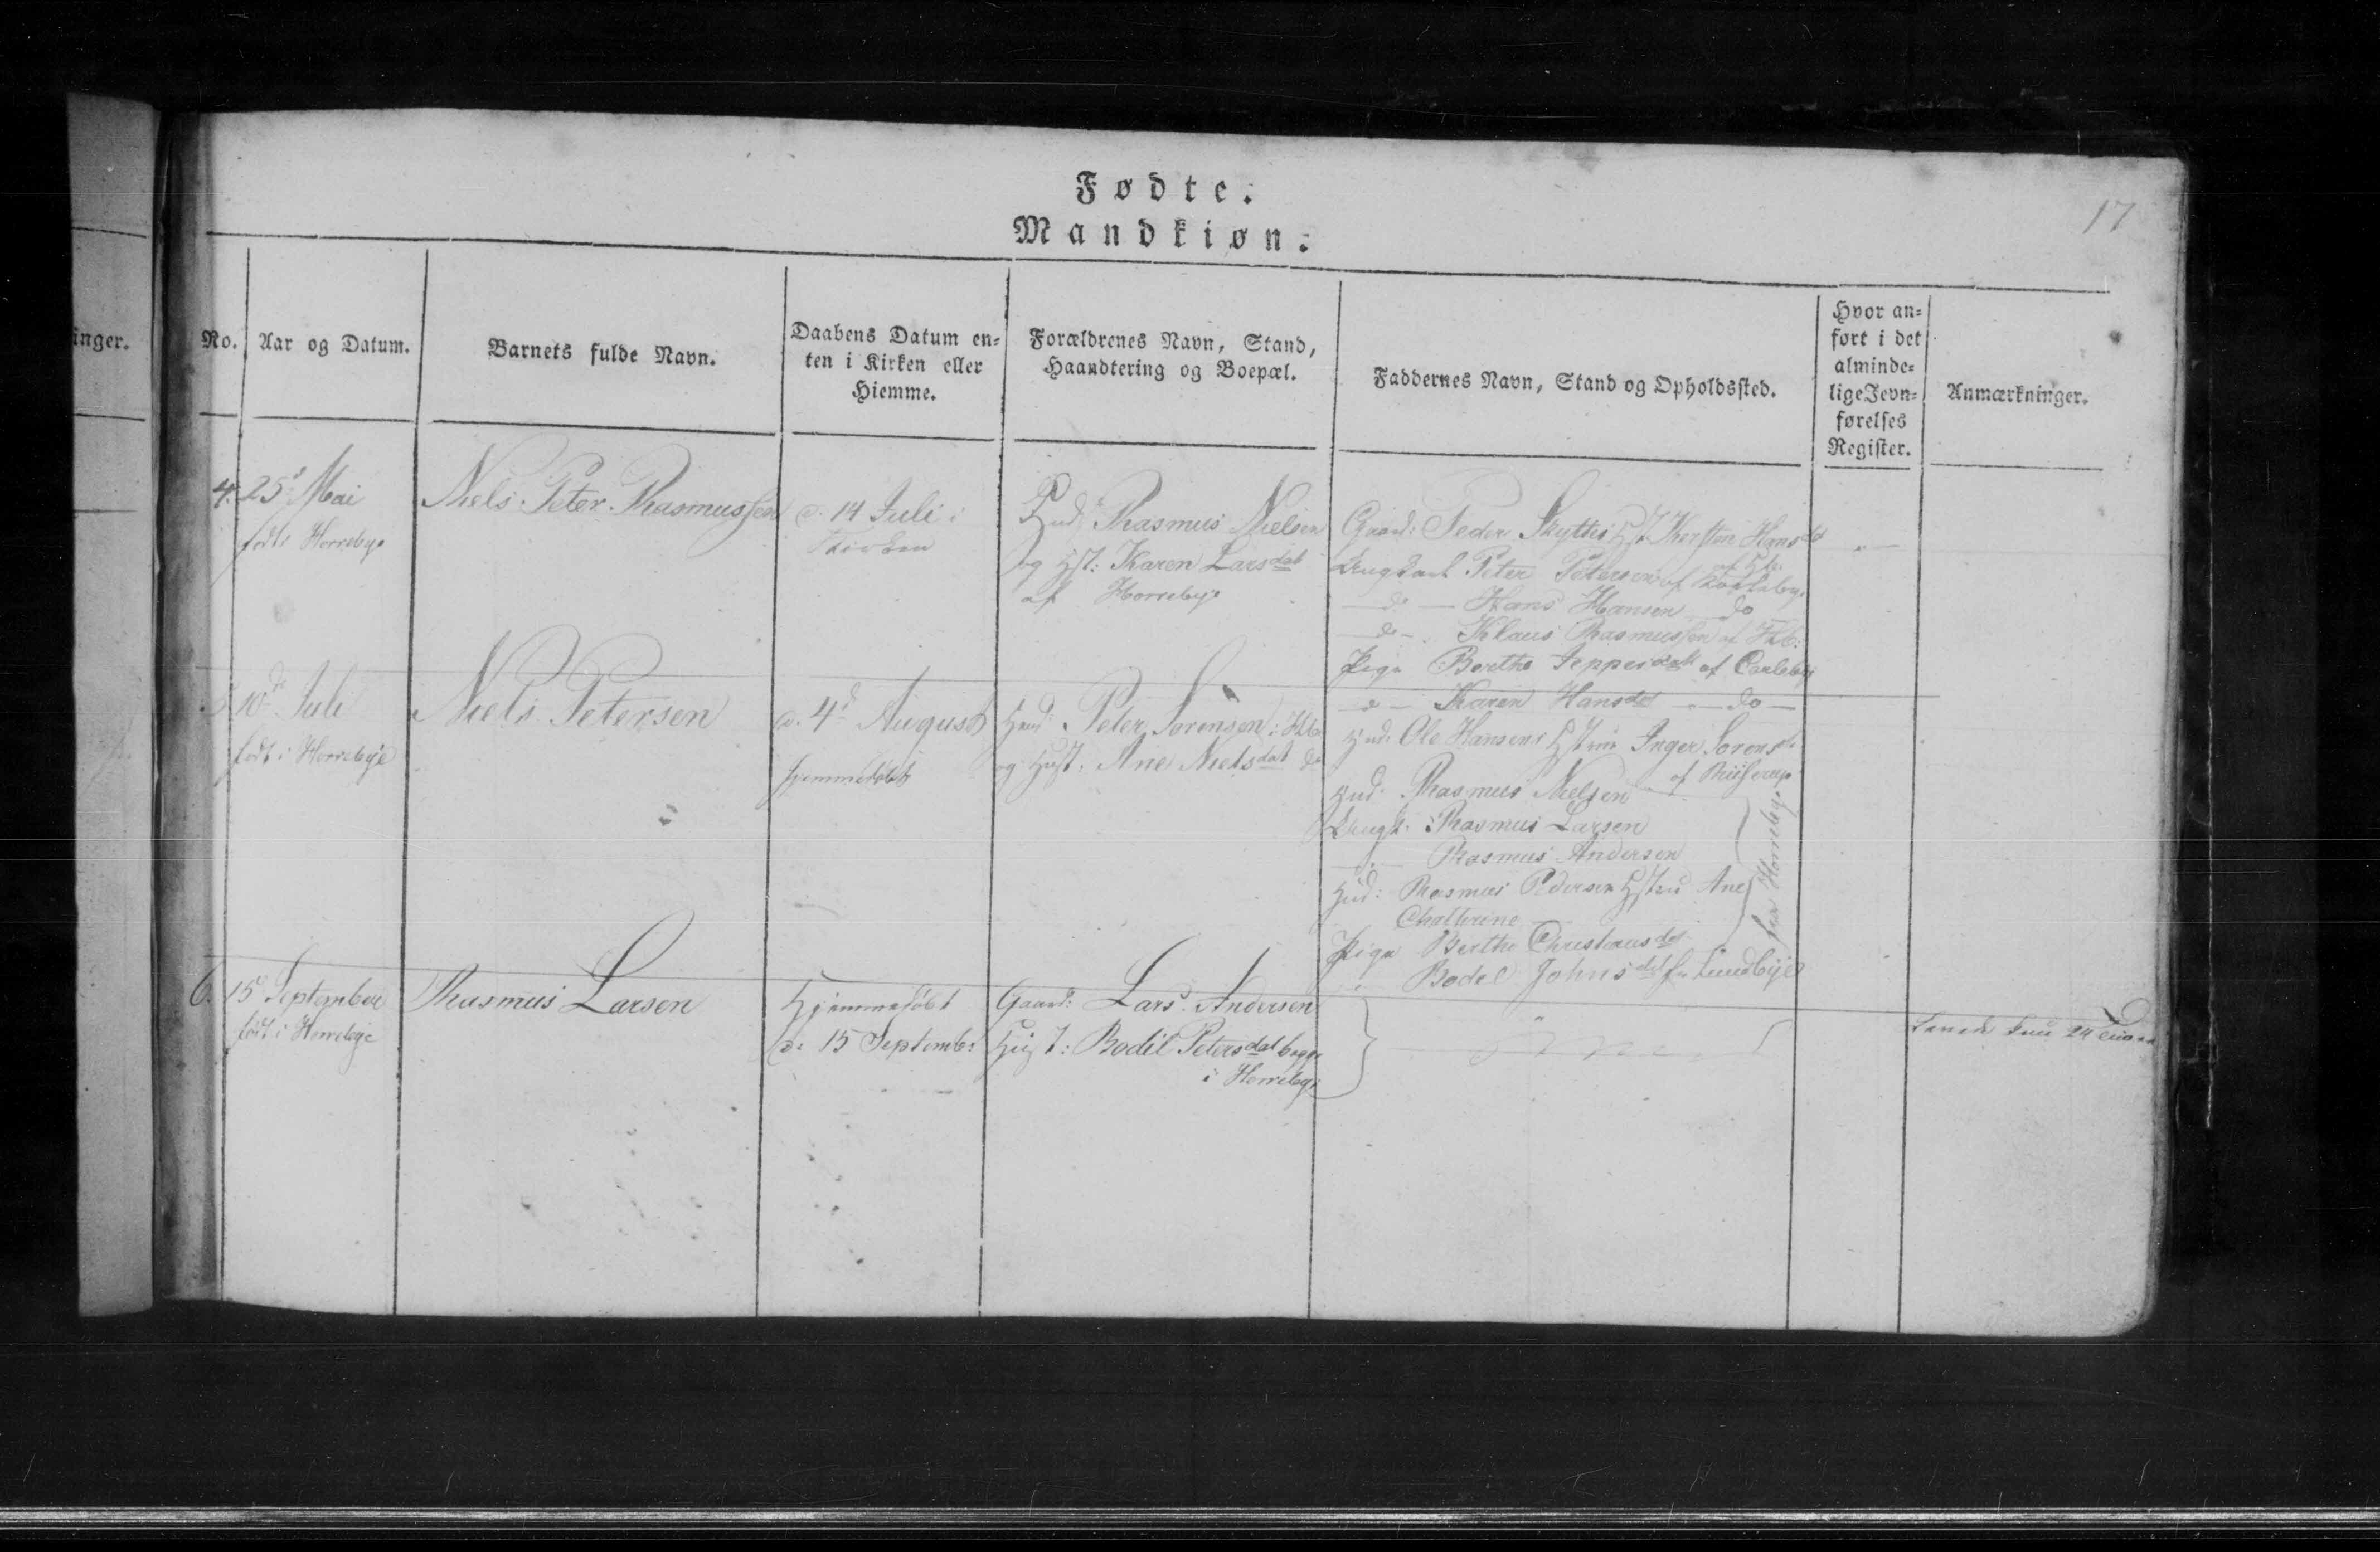 Fødte.
Mandkiøn.
17
inger.
No.
Aar og Datum.
Barnets fulde Navn.
Daabens Datum en-
ten i Kirken eller
Hiemme.
Forældrenes Navn, Stand,
Haandtering og Boepæl.
Faddernes Navn, Stand og Opholdssted.
Hvor an-
ført i det
alminde-
lige Jevn-
førelses
Register.
Anmærkninger.
4. 25d Mai
født i Horrebye
Niels Peter Rasmussen
d. 14 Juli i
Kirken
Huusd: Rasmus Nielsen
og Hst: Karen Larsdat
af Horrebye
Gaard: Peder Skyttes Hst Kersten Hansd
Peter Petersen af
do Hans Hansen do
do Klaus Rasmussen af
Pige Berthe Jeppesdatt af Carleby
do Karen Hansdat do
5 10de Juli
født i Horrebye
Niels Petersen
d. 4d August
hjemmedøbt
Huusd: Peter Sorensen i
og Hust. Ane Nielsdat do
Hud. Ole Hansens Hstru Inger Sorensd
af
Hud. Rasmus Nielsen
Rasmus Larsen
Rasmus Andersen
Hud: Rasmus Pedersen Hstru Ane
Chathrine
Pige Berthe Christensdat
Bodel Johnsdat fra Lundbye
fra Horrebye
6. 15d September
født i Horrebye
Rasmus Larsen
Hjemmedøbt
d: 15 Septembr
Gaard: Lars Andersen
Hust: Bodil Petersdat begge
i Horrebye
24